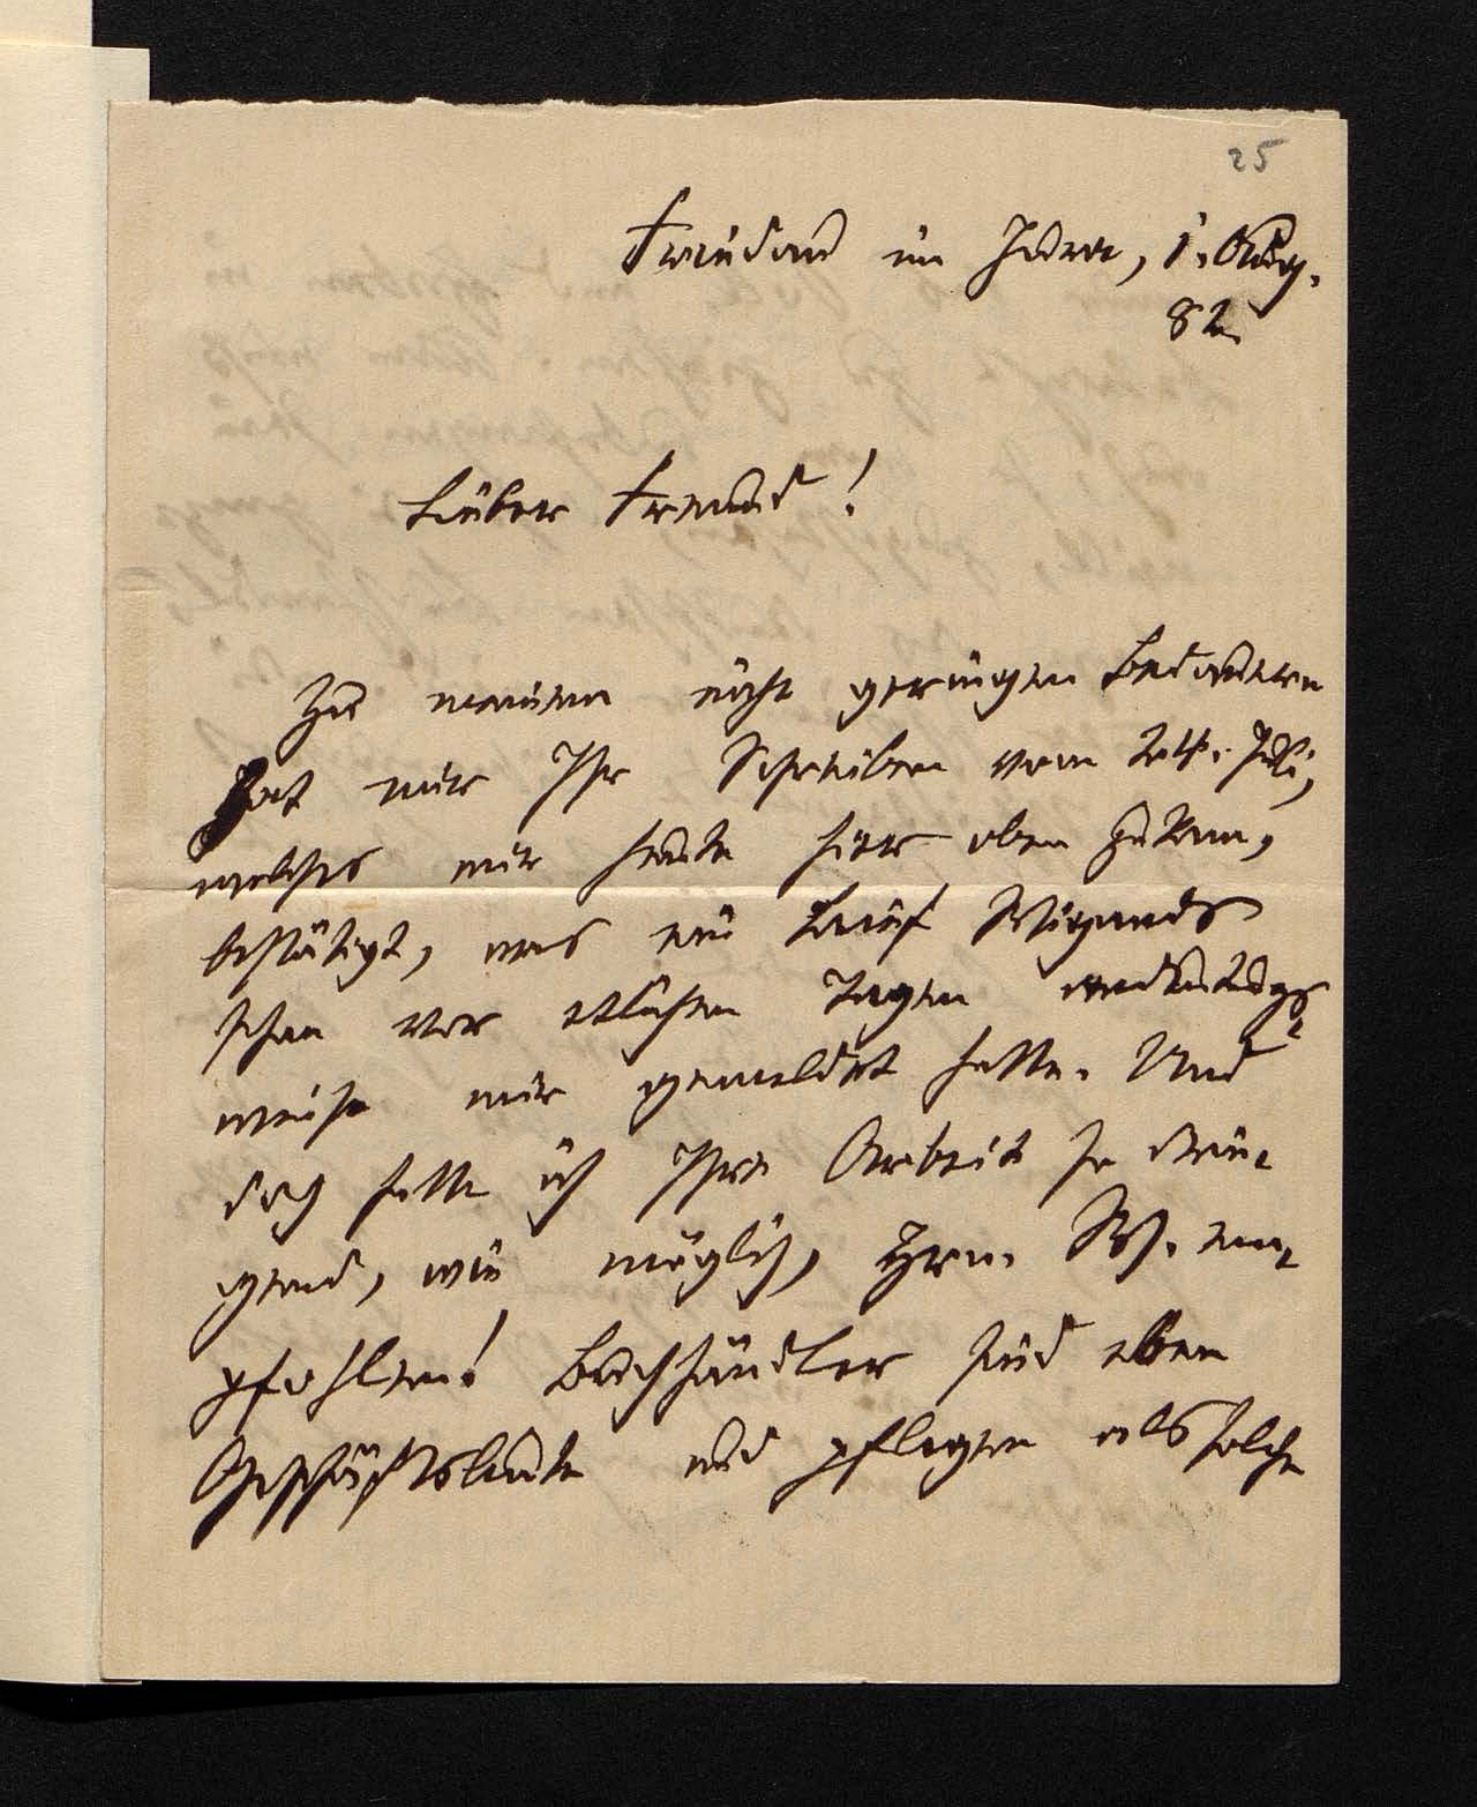 25
Friedau im Jura, 1. Aug.
82.
Lieber Freund!
Zu meinem nicht geringen Bedauern
hat mir Ihr Schreiben vom 24. Juli,
welches mir heute hier oben zukam,
bestätigt, was ein Brief Wigands
schon vor etlichen Tagen andeutungs-
weise mir gemeldet hatte. Und
doch hatte ich Ihre Arbeit so drin-
gend, wie möglich, Hrn. W. em-
pfohlen! Buchhändler sind eben
Geschäftsleute und pflegen als solche